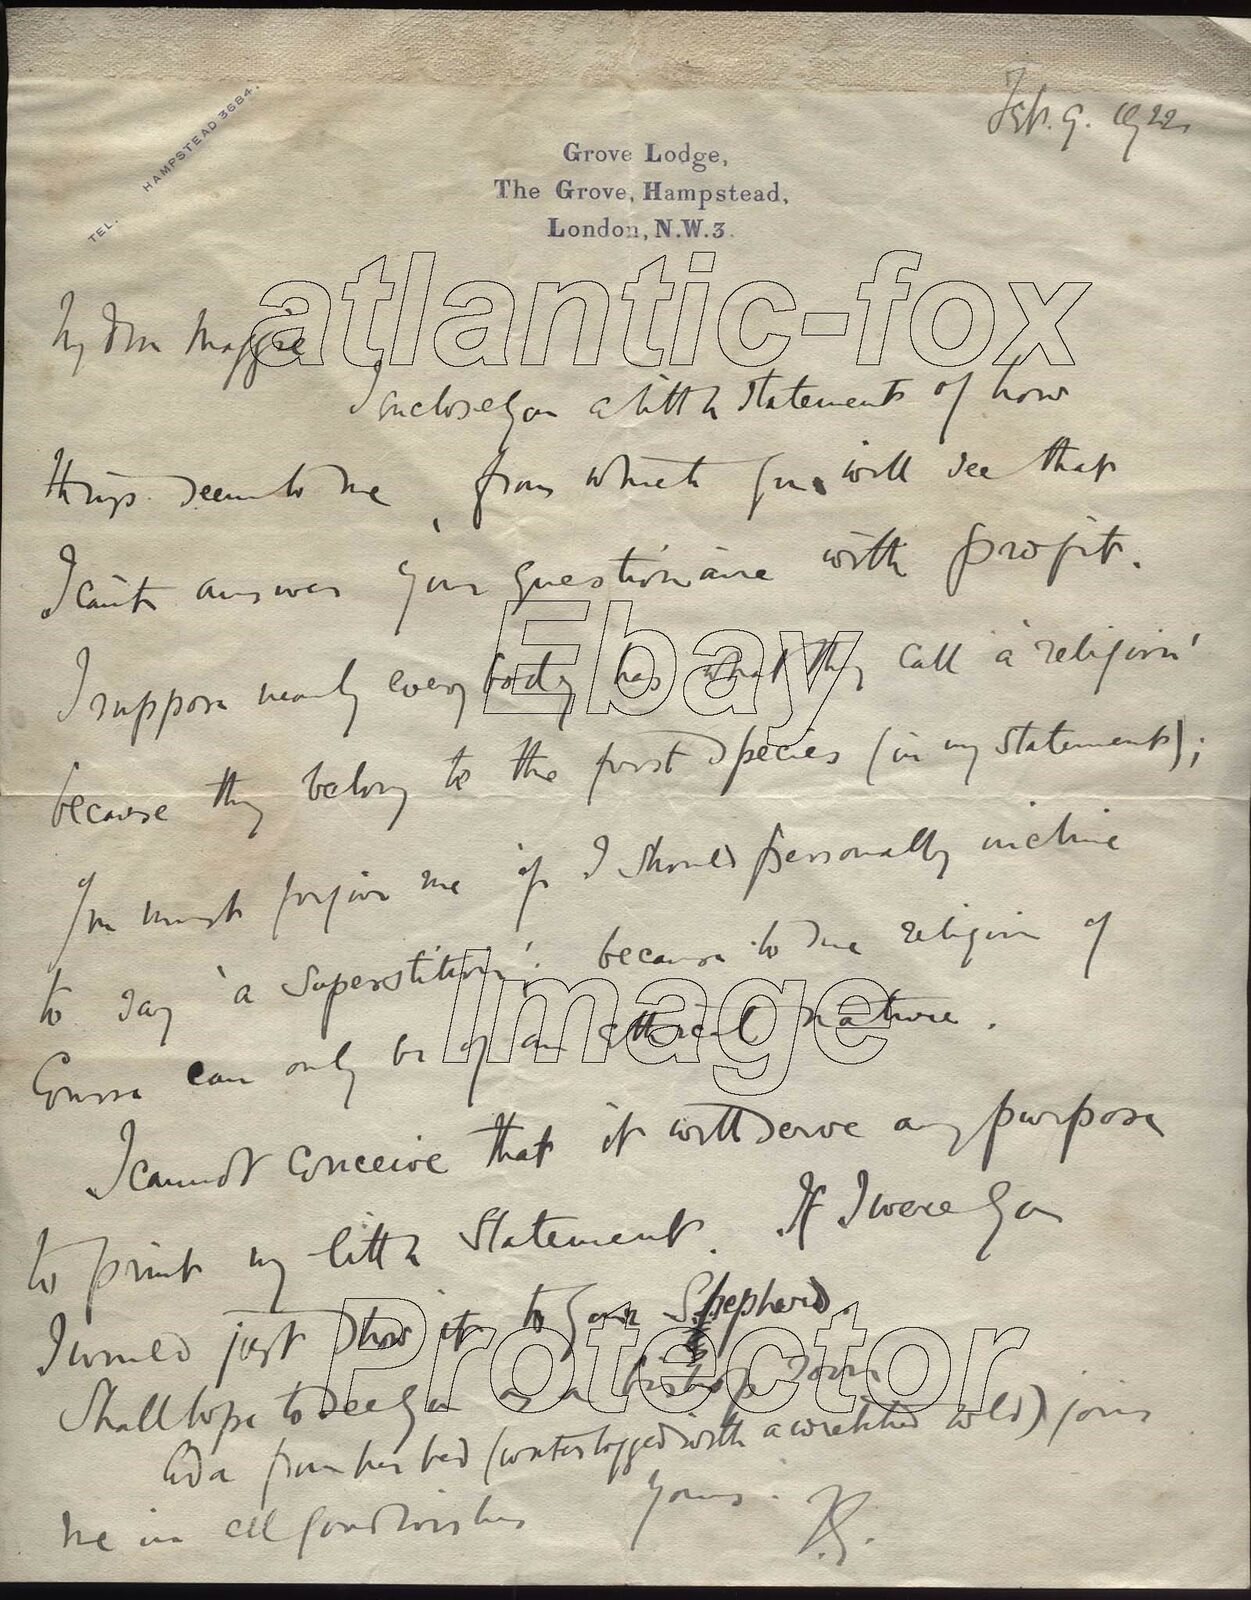 Feb. 9. 1922.
TEL. HAMPSTEAD 3684.
Grove Lodge,
The Grove, Hampstead,
London, N.W.3.
atlantic-fox
My dear Maggie
I enclose you a little statement of how
things seem to me, from which you will see that
I can't answer your questionaire with profit.
Ebay
I suppose nearly everybody has what they call 'a religion'
because they belong to the first species (in my statement);
You must forgive me if I should personally incline
to say 'a superstition': because to me religion of
Image
course can only be of an ethical nature.
I cannot conceive that it will serve any purpose
to print my little statement. If I were you
I would just show it to your Shepherd.
Protector
Shall hope to see you as a bishop soon
Ada from her bed (waterlogged with a wretched cold) joins
me in all good wishes
Yours
J.G.